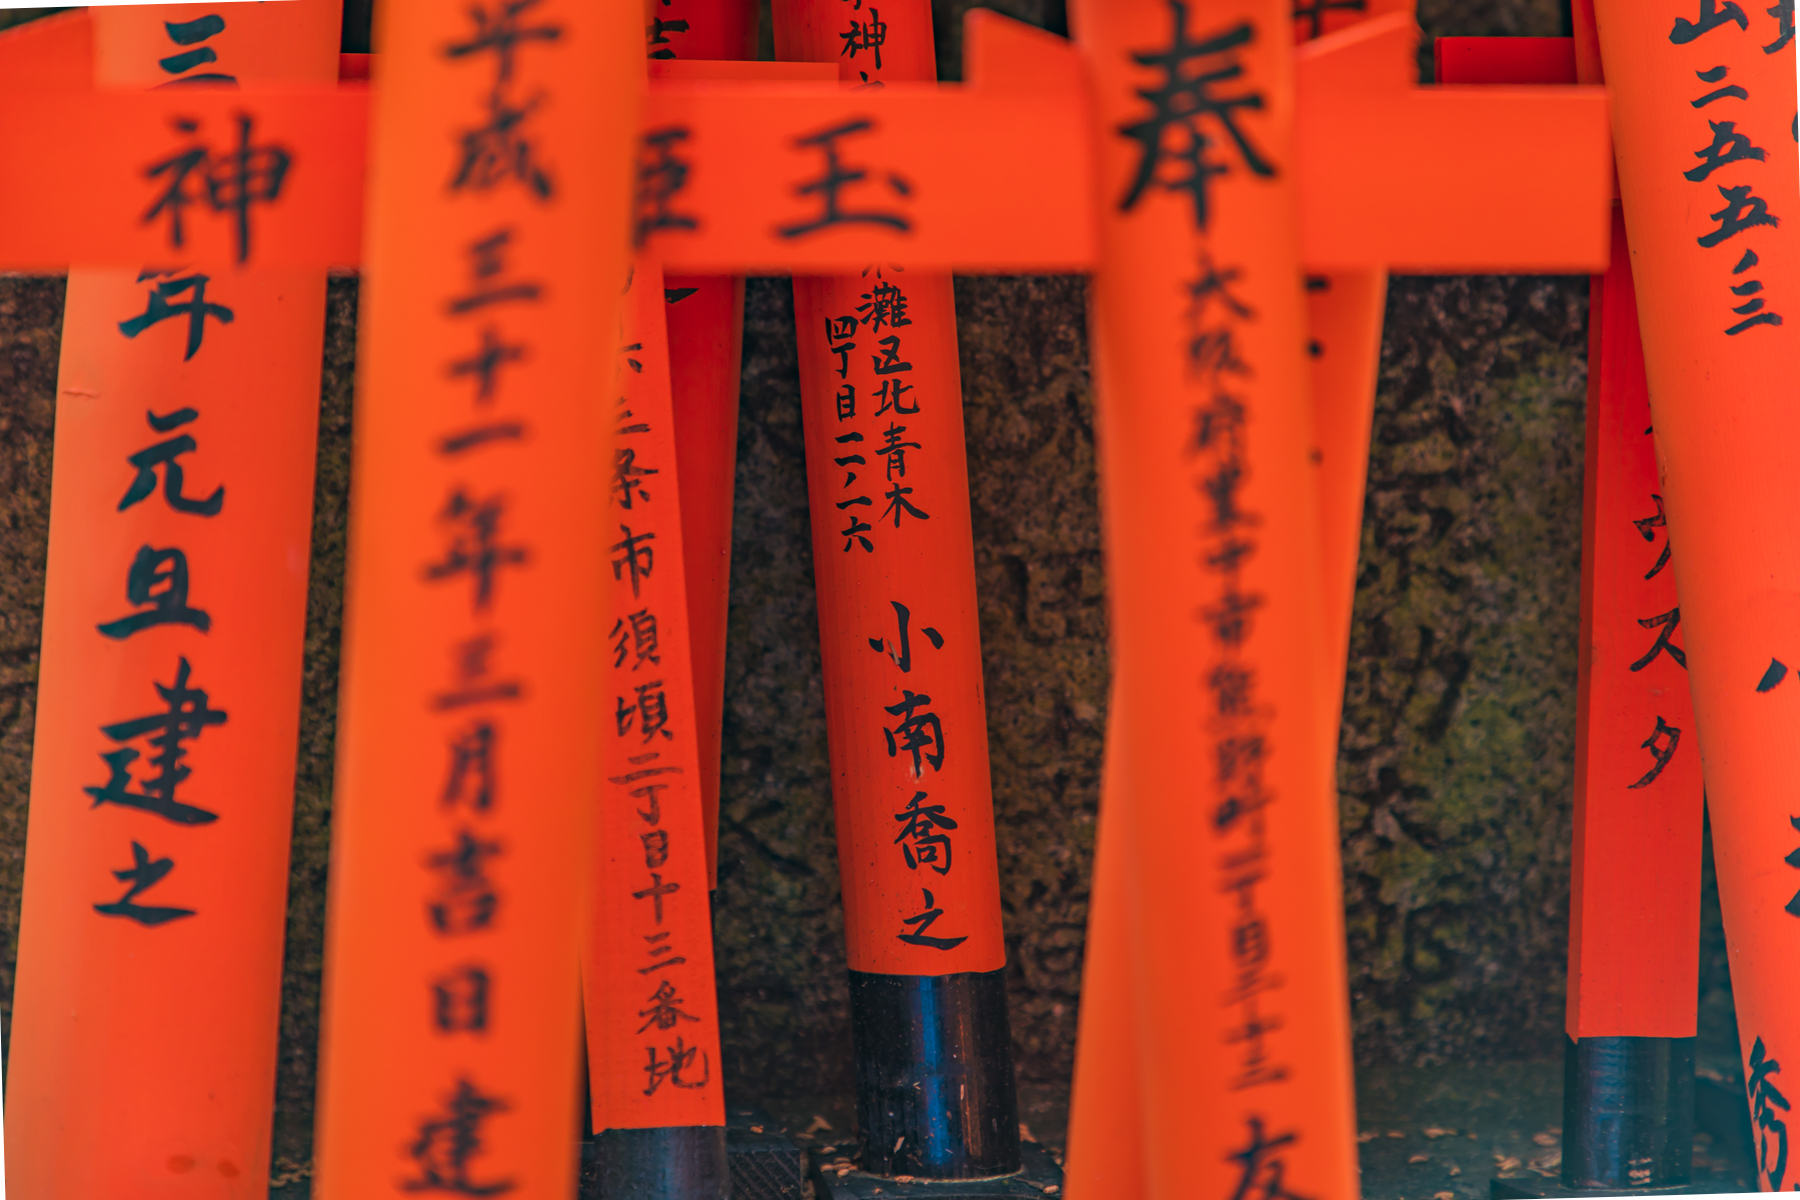 三
年元旦建之
神
平成三十一年三月吉日建
吉
三条市須頃二丁目十三番地
玉
神
灘区北青木
四丁目二ノ一六
小南喬之
奉
大阪府
市熊野町二丁目三十三
友
ウスタ
山二五五ノ三
秀